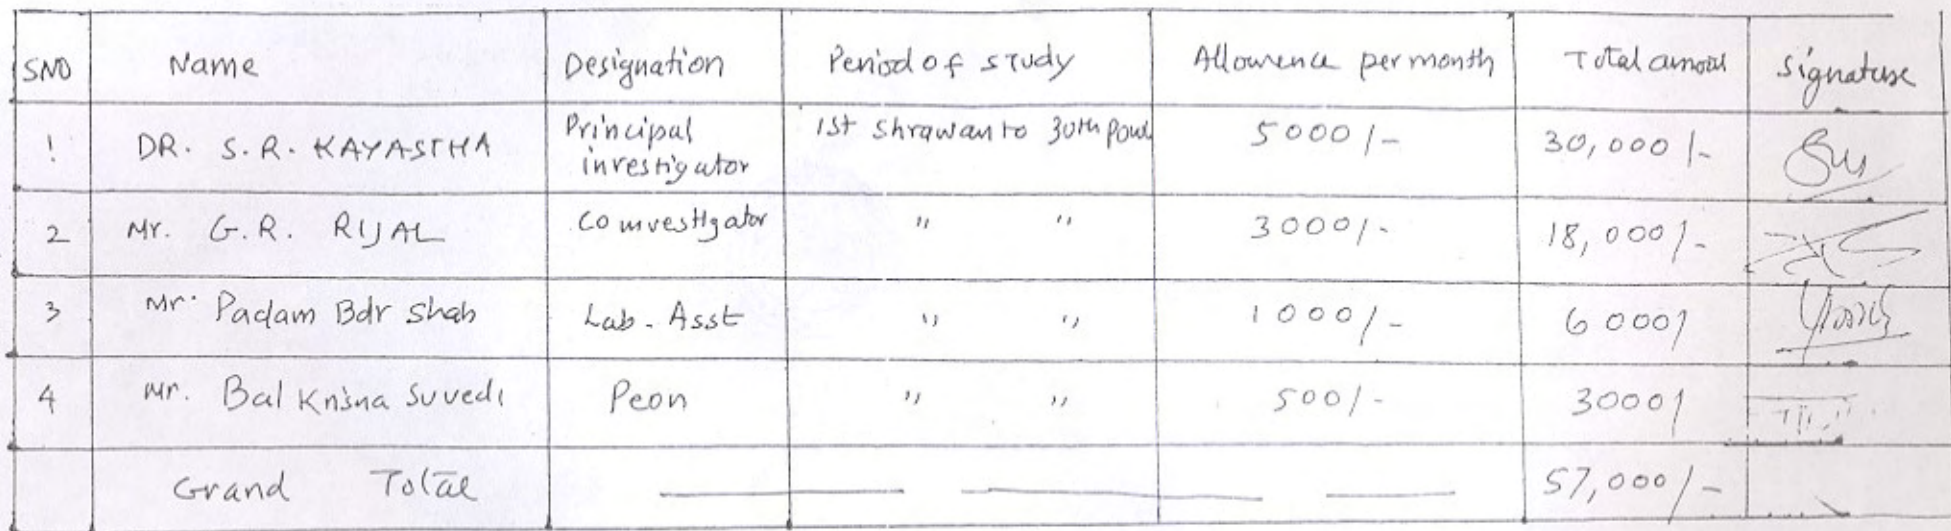 SNO Name Designation Period of study Allowence per month Total amount signature
1 DR. S.R. KAYASTHA Principal investigator 1st Shrawan to 30th Poush 5000/- 30,000/-
2 Mr. G.R. RIJAL Co investigator " " 3000/- 18,000/-
3 Mr. Padam Bdr Shah Lab. Asst " " 1000/- 6000/
4 Mr. Bal Krisna Suvedi Peon " " 500/- 3000/
Grand Total 57,000/-